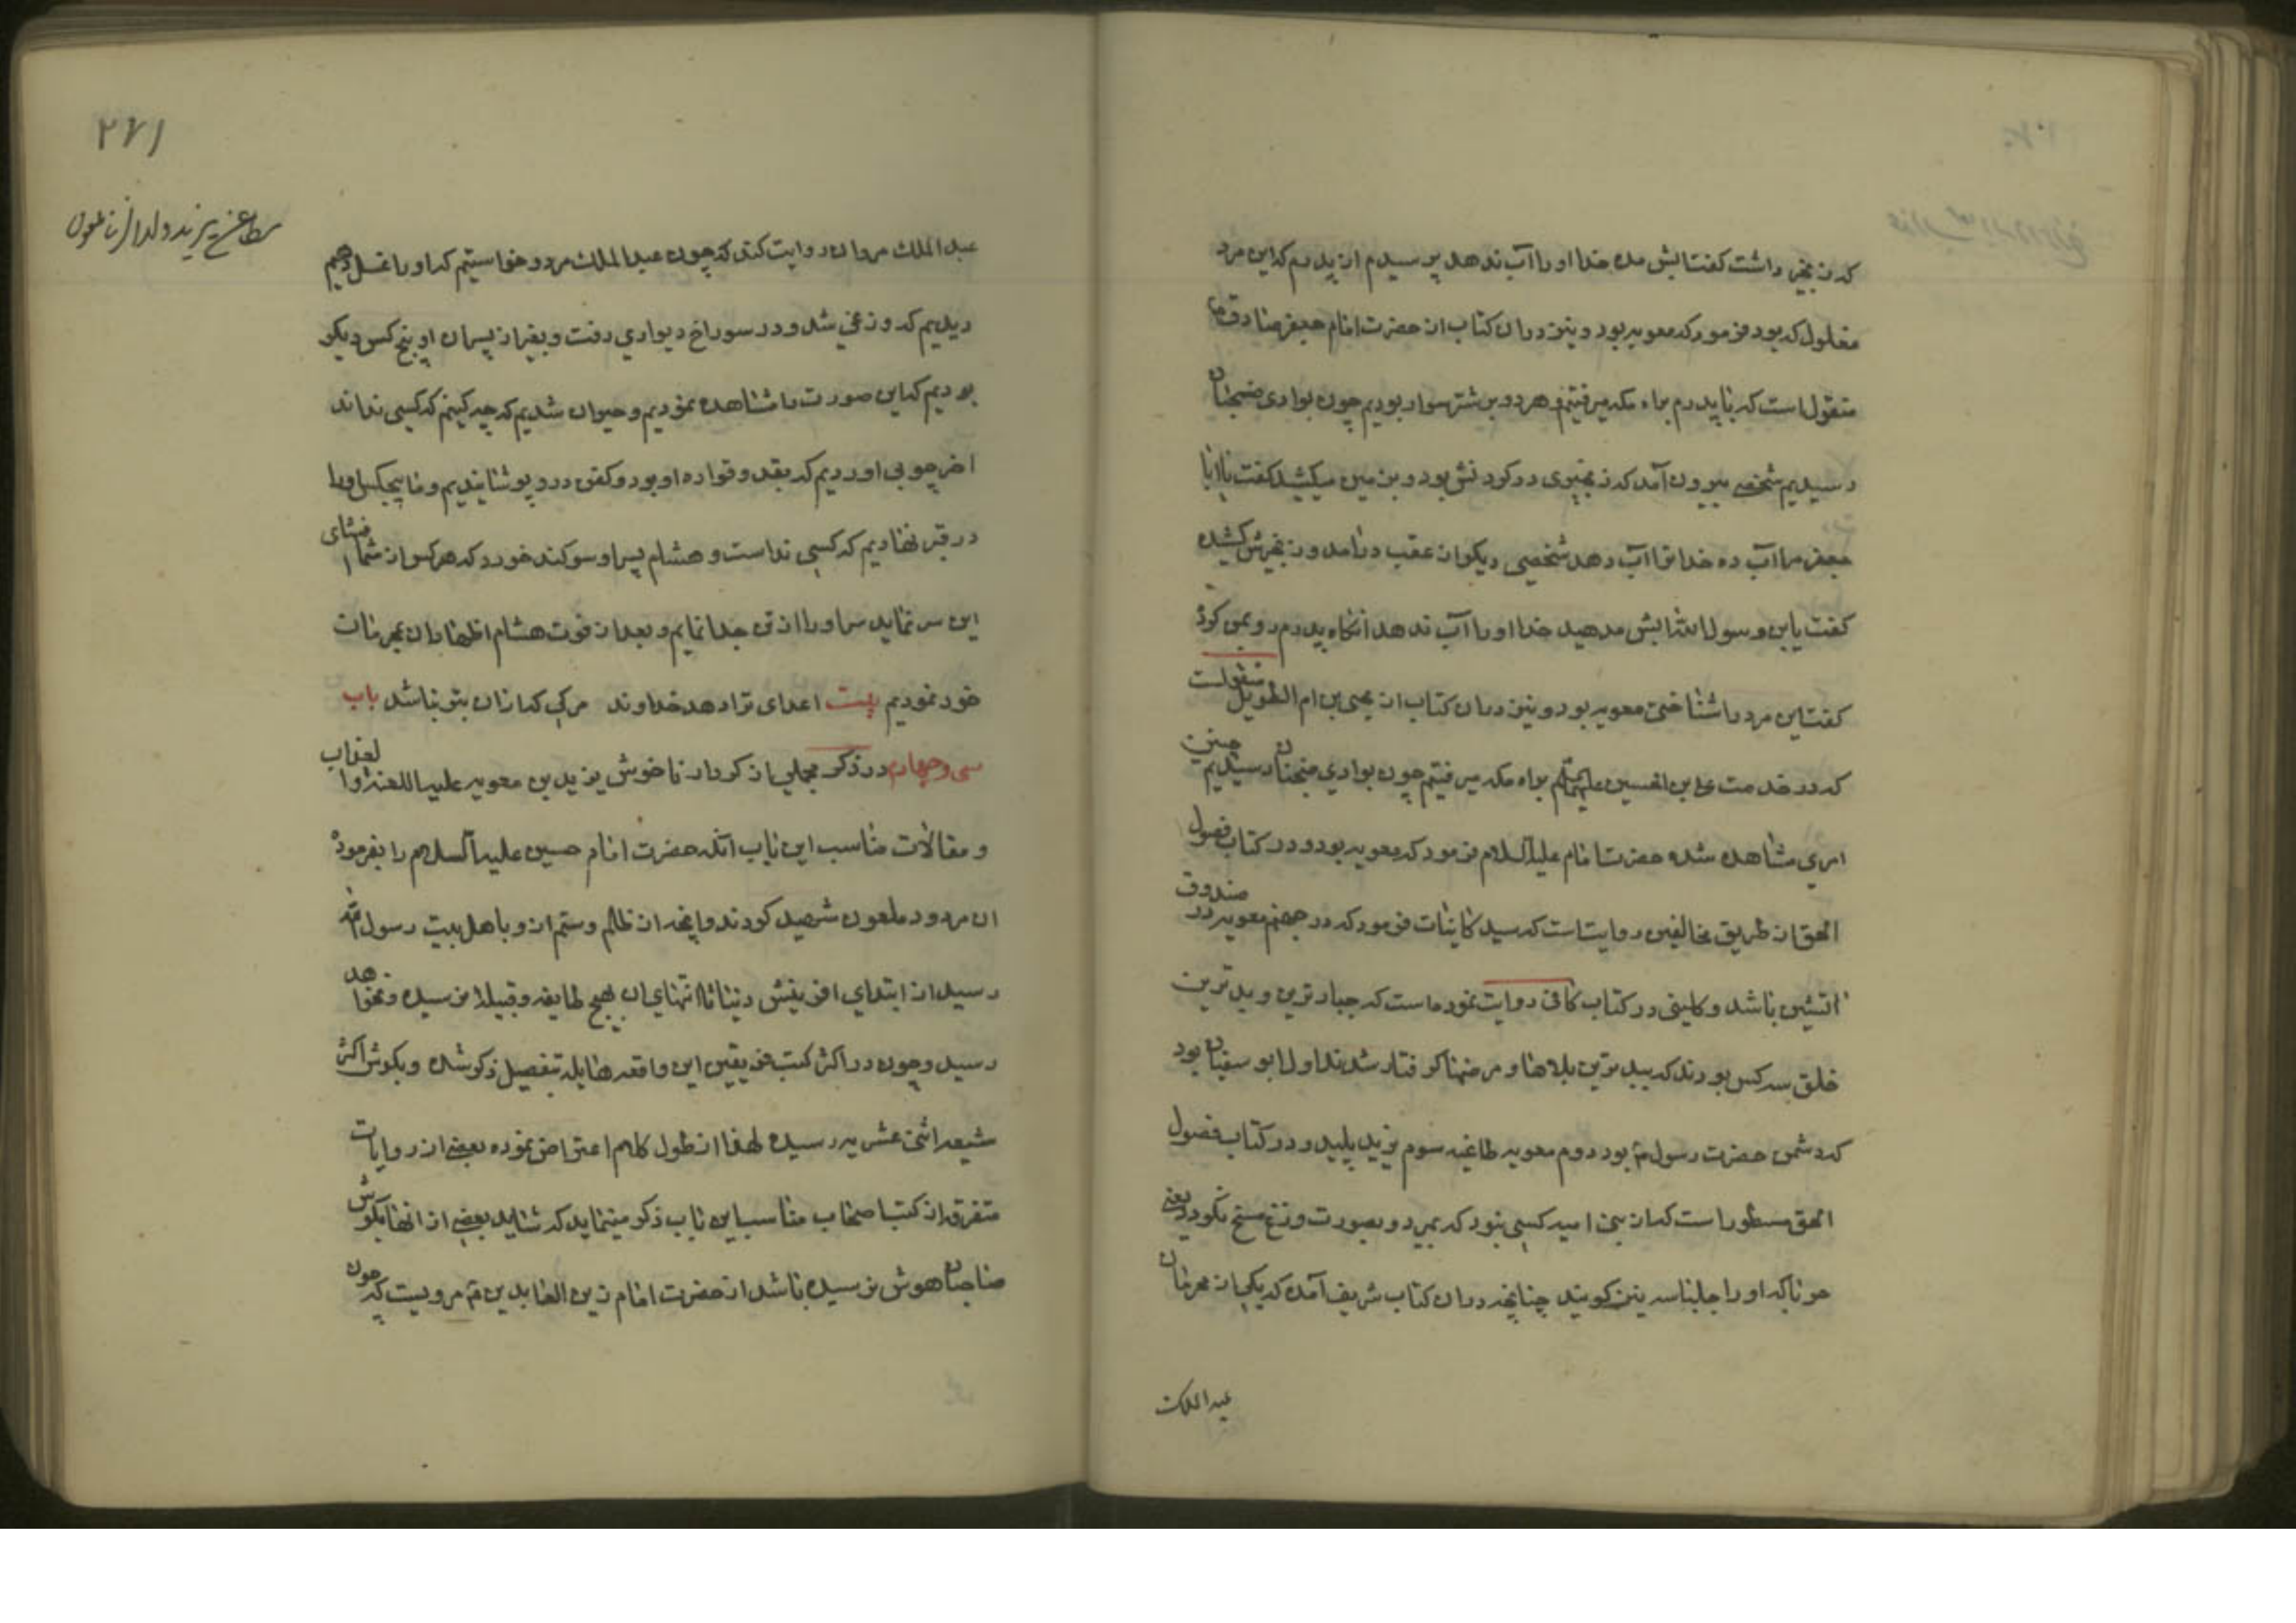 که زنجیر داشت گفت ابش مده خدا او را آب ندهد پرسیدم از پدرم که این مرد
مغلول که بود فرمود که معویه بود و نیز در ان کتاب از حضرت امام جعفر صادق ع
منقول است که با پدرم براه مکه میرفتیم و هر دو بر شتر سوار بودیم چون بوادی ضجنان
رسیدیم شخصی بیرون آمد که زنجیری در گردنش بود و بزمین میکشید گفت یا ابا
جعفر مرا آب ده خدا ترا آب دهد شخصی دیگر از عقب در آمد و زنجیرش کشیده
گفت یابن رسول الله ابش مدهید خدا او را آب ندهد آنگاه پدرم رو بمن کرد
گفت این مرد را شناختی معویه بود و نیز در ان کتاب از یحیی بن ام الطویل منقولست
که در خدمت علی بن الحسین علیهما السلم براه مکه میرفتیم چون بوادی ضجنان رسیدیم چنین
امری مشاهده شده حضرت امام علیه السلام فرمود که معویه بود و در کتاب فصول
الحق از طریق مخالفین روایت است که سید کاینات فرمود که در جهنم معویه در صندوق
اتشین باشد و کلینی در کتاب کافی روایت نموده است که جبارترین و بدترین
خلق سه کس بودند که ببدترین بلاها و مرضها گرفتار شدند اول ابو سفیان بود
که دشمن حضرت رسول ص بود دوم معویه طاغیه سوم یزید پلید و در کتاب فصول
الحق مسطور است که از بنی امیه کسی نبود که بمیرد و بصورت وزغ مسخ نگردد یعنی
حرناکه او را جلپاسه نیز گویند چنانچه در ان کتاب شریف آمده که یکی از محرمان
عبد الملک
۲۷۱
مطاعن یزید ولد الزنا ملعون
عبد الملک مروان روایت کند که چون عبد الملک مرد و خواستیم که او را غسل دهیم
دیدیم که وزغی شد و در سوراخ دیواری رفت و بغیر از پسران او پنج کس دیگر
بودیم که این صورت را مشاهده نمودیم و حیران شدیم که چه کنیم که کسی نداند
اخر چوبی اوردیم که بقد و قواره او بود و کفن درو پوشانیدیم و ما پیچیکس او را
در قبر نهادیم که کسی ندانست و هشام پسر او سوگند خورد که هر کس از شما افشای
این سر نماید سر او را از تن جدا نمایم و بعد از فوت هشام اظهار ان بمحرمان
خود نمودیم بیت اعدای ترا دهد خداوند مرگی که از آن بتر نباشد باب
سی و چهارم در ذکر مجملی از کردار ناخوش یزید بن معویه علیه اللعنه و العذاب
و مقالات مناسب این باب آنکه حضرت امام حسین علیه السلام را بفرموده
ان مردود ملعون شهید کردند و آنچه از ظلم و ستم ازو باهل بیت رسول الله
رسید از ابتدای افرینش دنیا تا انتهای ان بهیچ طایفه و قبیله نرسیده و نخواهد
رسید و چون در اکثر کتب فریقین این واقعه هایله بتفصیل ذکر شده و بگوش اکثر
شیعه اثنی عشریه رسیده لهذا از طول کلام اعتراض نموده بعضی از روایات
متفرق از کتب اصحاب مناسب این باب ذکر مینماید که شاید بعضی از انها بگوش
صاحبان هوش نرسیده باشد از حضرت امام زین العابدین ع مرویست که چون